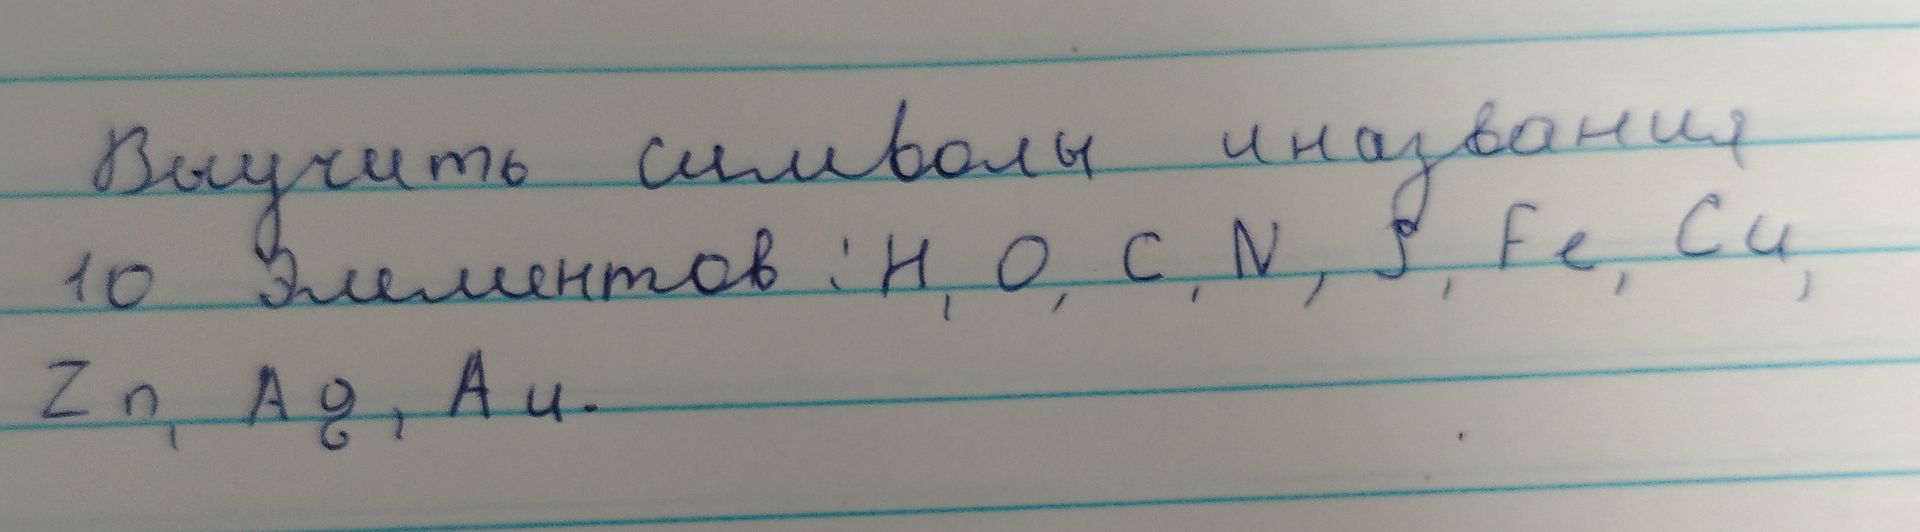 Выучить символы и названия
10 элементов: H, O, C, N, S, Fe, Cu,
Zn, Ag, Au.